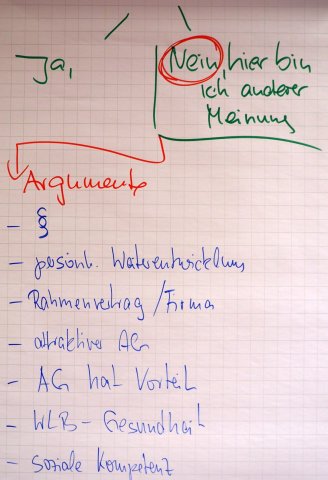 Ja,
Nein, hier bin
ich anderer
Meinung
Argumente
- §
- persönl. Weiterentwicklung
- Rahmenvertrag / Firma
- attraktiver AG
- AG hat Vorteil
- WLB - Gesundheit
- soziale Kompetenz